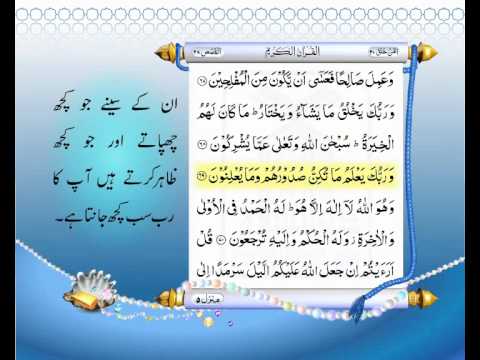 اَمَّنْ خَلَقَ ٢٠
اَلْقُرْاٰنُ الْكَرِيْمُ
اَلْقَصَص ٢٨
وَعَمِلَ صَالِحًا فَعَسٰٓى اَنْ يَّكُوْنَ مِنَ الْمُفْلِحِيْنَ ﴿۶۷﴾
وَرَبُّكَ يَخْلُقُ مَا يَشَآءُ وَيَخْتَارُ ؕ مَا كَانَ لَهُمُ
الْخِيَرَةُ ؕ سُبْحٰنَ اللّٰهِ وَتَعٰلٰى عَمَّا يُشْرِكُوْنَ ﴿۶۸﴾
وَرَبُّكَ يَعْلَمُ مَا تُكِنُّ صُدُوْرُهُمْ وَمَا يُعْلِنُوْنَ ﴿۶۹﴾
وَهُوَ اللّٰهُ لَاۤ اِلٰهَ اِلَّا هُوَ ؕ لَهُ الْحَمْدُ فِى الْاُوْلٰى
وَالْاٰخِرَةِ ؗ وَلَهُ الْحُكْمُ وَاِلَيْهِ تُرْجَعُوْنَ ﴿۷۰﴾ قُلْ
اَرَءَيْتُمْ اِنْ جَعَلَ اللّٰهُ عَلَيْكُمُ الَّيْلَ سَرْمَدًا اِلٰى
منزل ۵
ان کے سینے جو کچھ
چھپاتے اور جو کچھ
ظاہر کرتے ہیں آپ کا
رب سب کچھ جانتا ہے۔